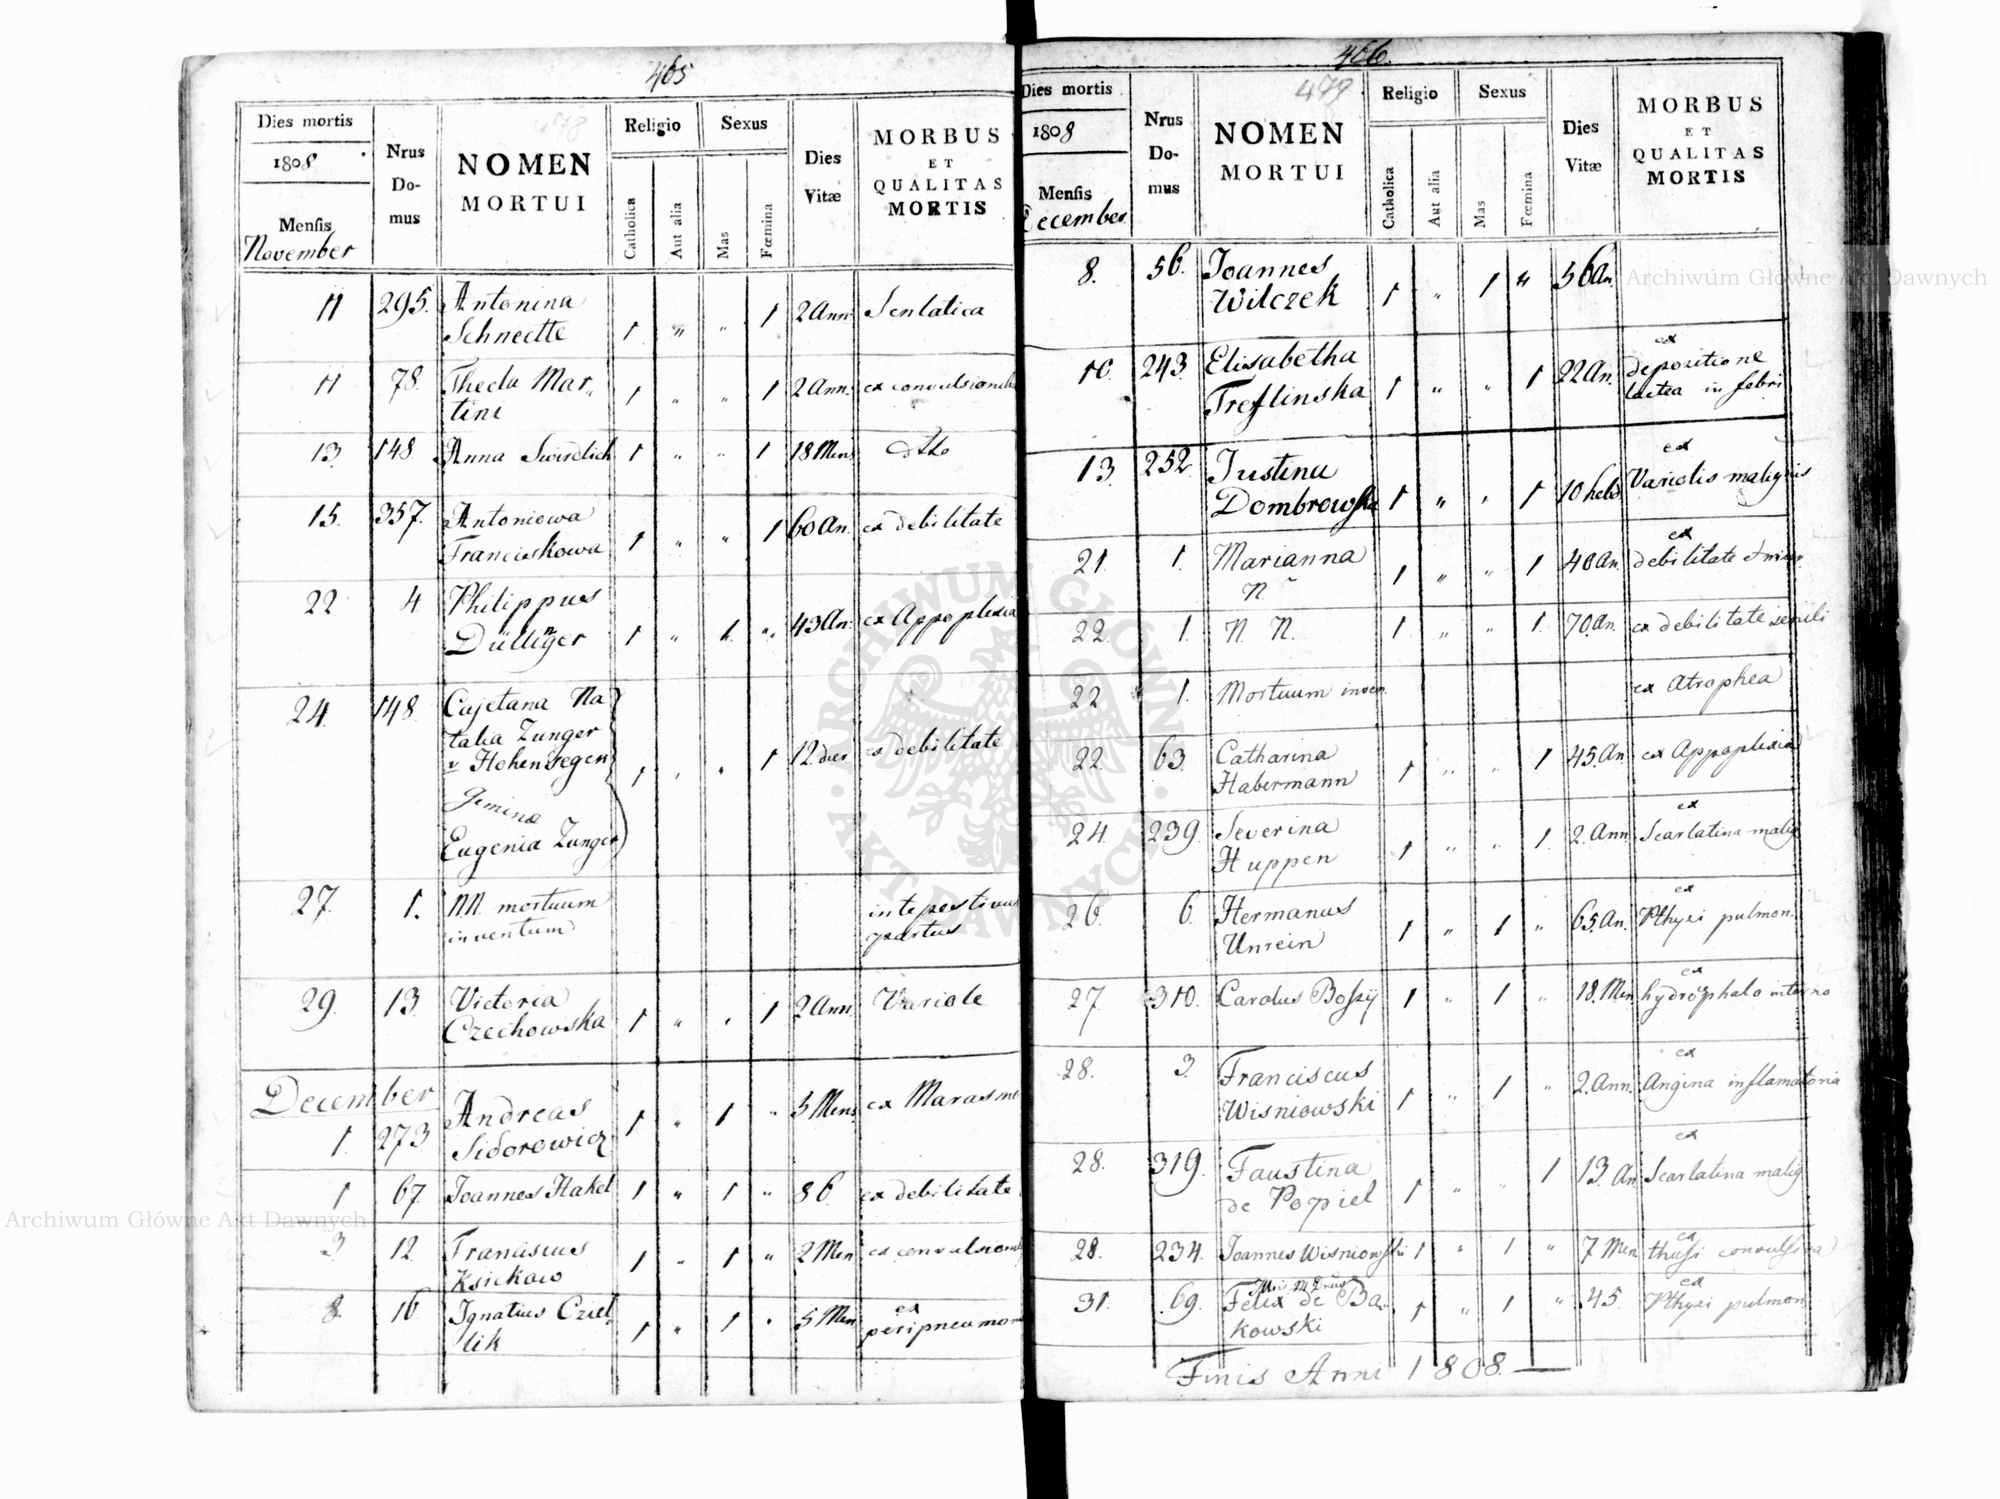 405
478
Dies mortis
1808
Mensis
November
Nrus
Do-
mus
NOMEN
MORTUI
Religio
Catholica
Aut alia
Sexus
Mas
Fœmina
Dies
Vitæ
MORBUS
ET
QUALITAS
MORTIS
11 295. Antonina 1 " " 1 2 Ann.
Schnectte
11 78. Thecla Mar- 1 " " 1 2 Ann. ex convulsionib
tini
13. 148 Anna 1 " " 1 18 Mens dtto
15. 357. Antoniowa 1 " " 1 60 An. ex debilitate
Franciskowa
22 4 Philippus 1 " 1. " 43 An. ex Appoplexia
24. 148. Cajetana Na
talia Zunger
v Hohensegen 1 " " 1 12 dier ex debilitate
Gemina
Eugenia Zunger
27. 1. NN. mortuum
inventum
intepestivus
partus
29. 13. Victoria 1 " " 1 2 Ann. Variole
Czechowska
December
1. 273 Andreas 1 " 1 " 3 Mens ex Marasmo
Sidorowicz
1 67. Joannes Hakel 1 " 1 " 86 ex debilitate
3 12. Franciscus 1 " 1 " 2 Men
Ksickow
8. 16 Ignatius Cziel- 1 " 1 " 5 Men ex
lik peripneumon
406.
479
Dies mortis
1808
Mensis
December
Nrus
Do-
mus
NOMEN
MORTUI
Religio
Catholica
Aut alia
Sexus
Mas
Fœmina
Dies
Vitæ
MORBUS
ET
QUALITAS
MORTIS
8. 56. Joannes 1 " 1 " 56 An.
Wilczek
10. 243. Elisabetha 1 " " 1 22 An. ex
depositione
Treflinska lactea in febri
13. 252. Justina 1 " " 1 10 hebd ex
Variolis malignis
Dombrowska
21. 1. Marianna 1 " " 1 40 An. ex
debilitate
N.
22. 1. N. N. 1 " " 1. 70. An. ex debilitate senili
22 1. Mortuum inven. ex Atrophea
22. 63. Catharina 1 " " 1 45. An. ex Appoplexia
Habermann
24. 239. Severina 1 " " 1. 2. Ann. ex
Scarlatina malig
Huppen
26. 6. Hermanus 1 " 1 " 65. An. ex
Pthysi pulmon.
Unrein
27. 310. Carolus Bossij 1 " 1 " 18. Men. ex
hydrocephalo interno
28. 3. Franciscus 1 " 1 " 2. Ann. ex
Angina inflamatoria
Wisniowski
28. 319. Faustina 1 " " 1 13. An. ex
Scarlatina malig
de Popiel
28. 234. Joannes Wisniowski 1 " 1 " 7 Men. ex
thussi convulsiva
31. 69. Felix de Ba- 1 " 1 " 45. ex
Pthysi pulmon
kowski
Finis Anni 1808.
ARCHIWUM GŁÓWNE AKT DAWNYCH
Archiwum Główne Akt Dawnych
Archiwum Główne Akt Dawnych